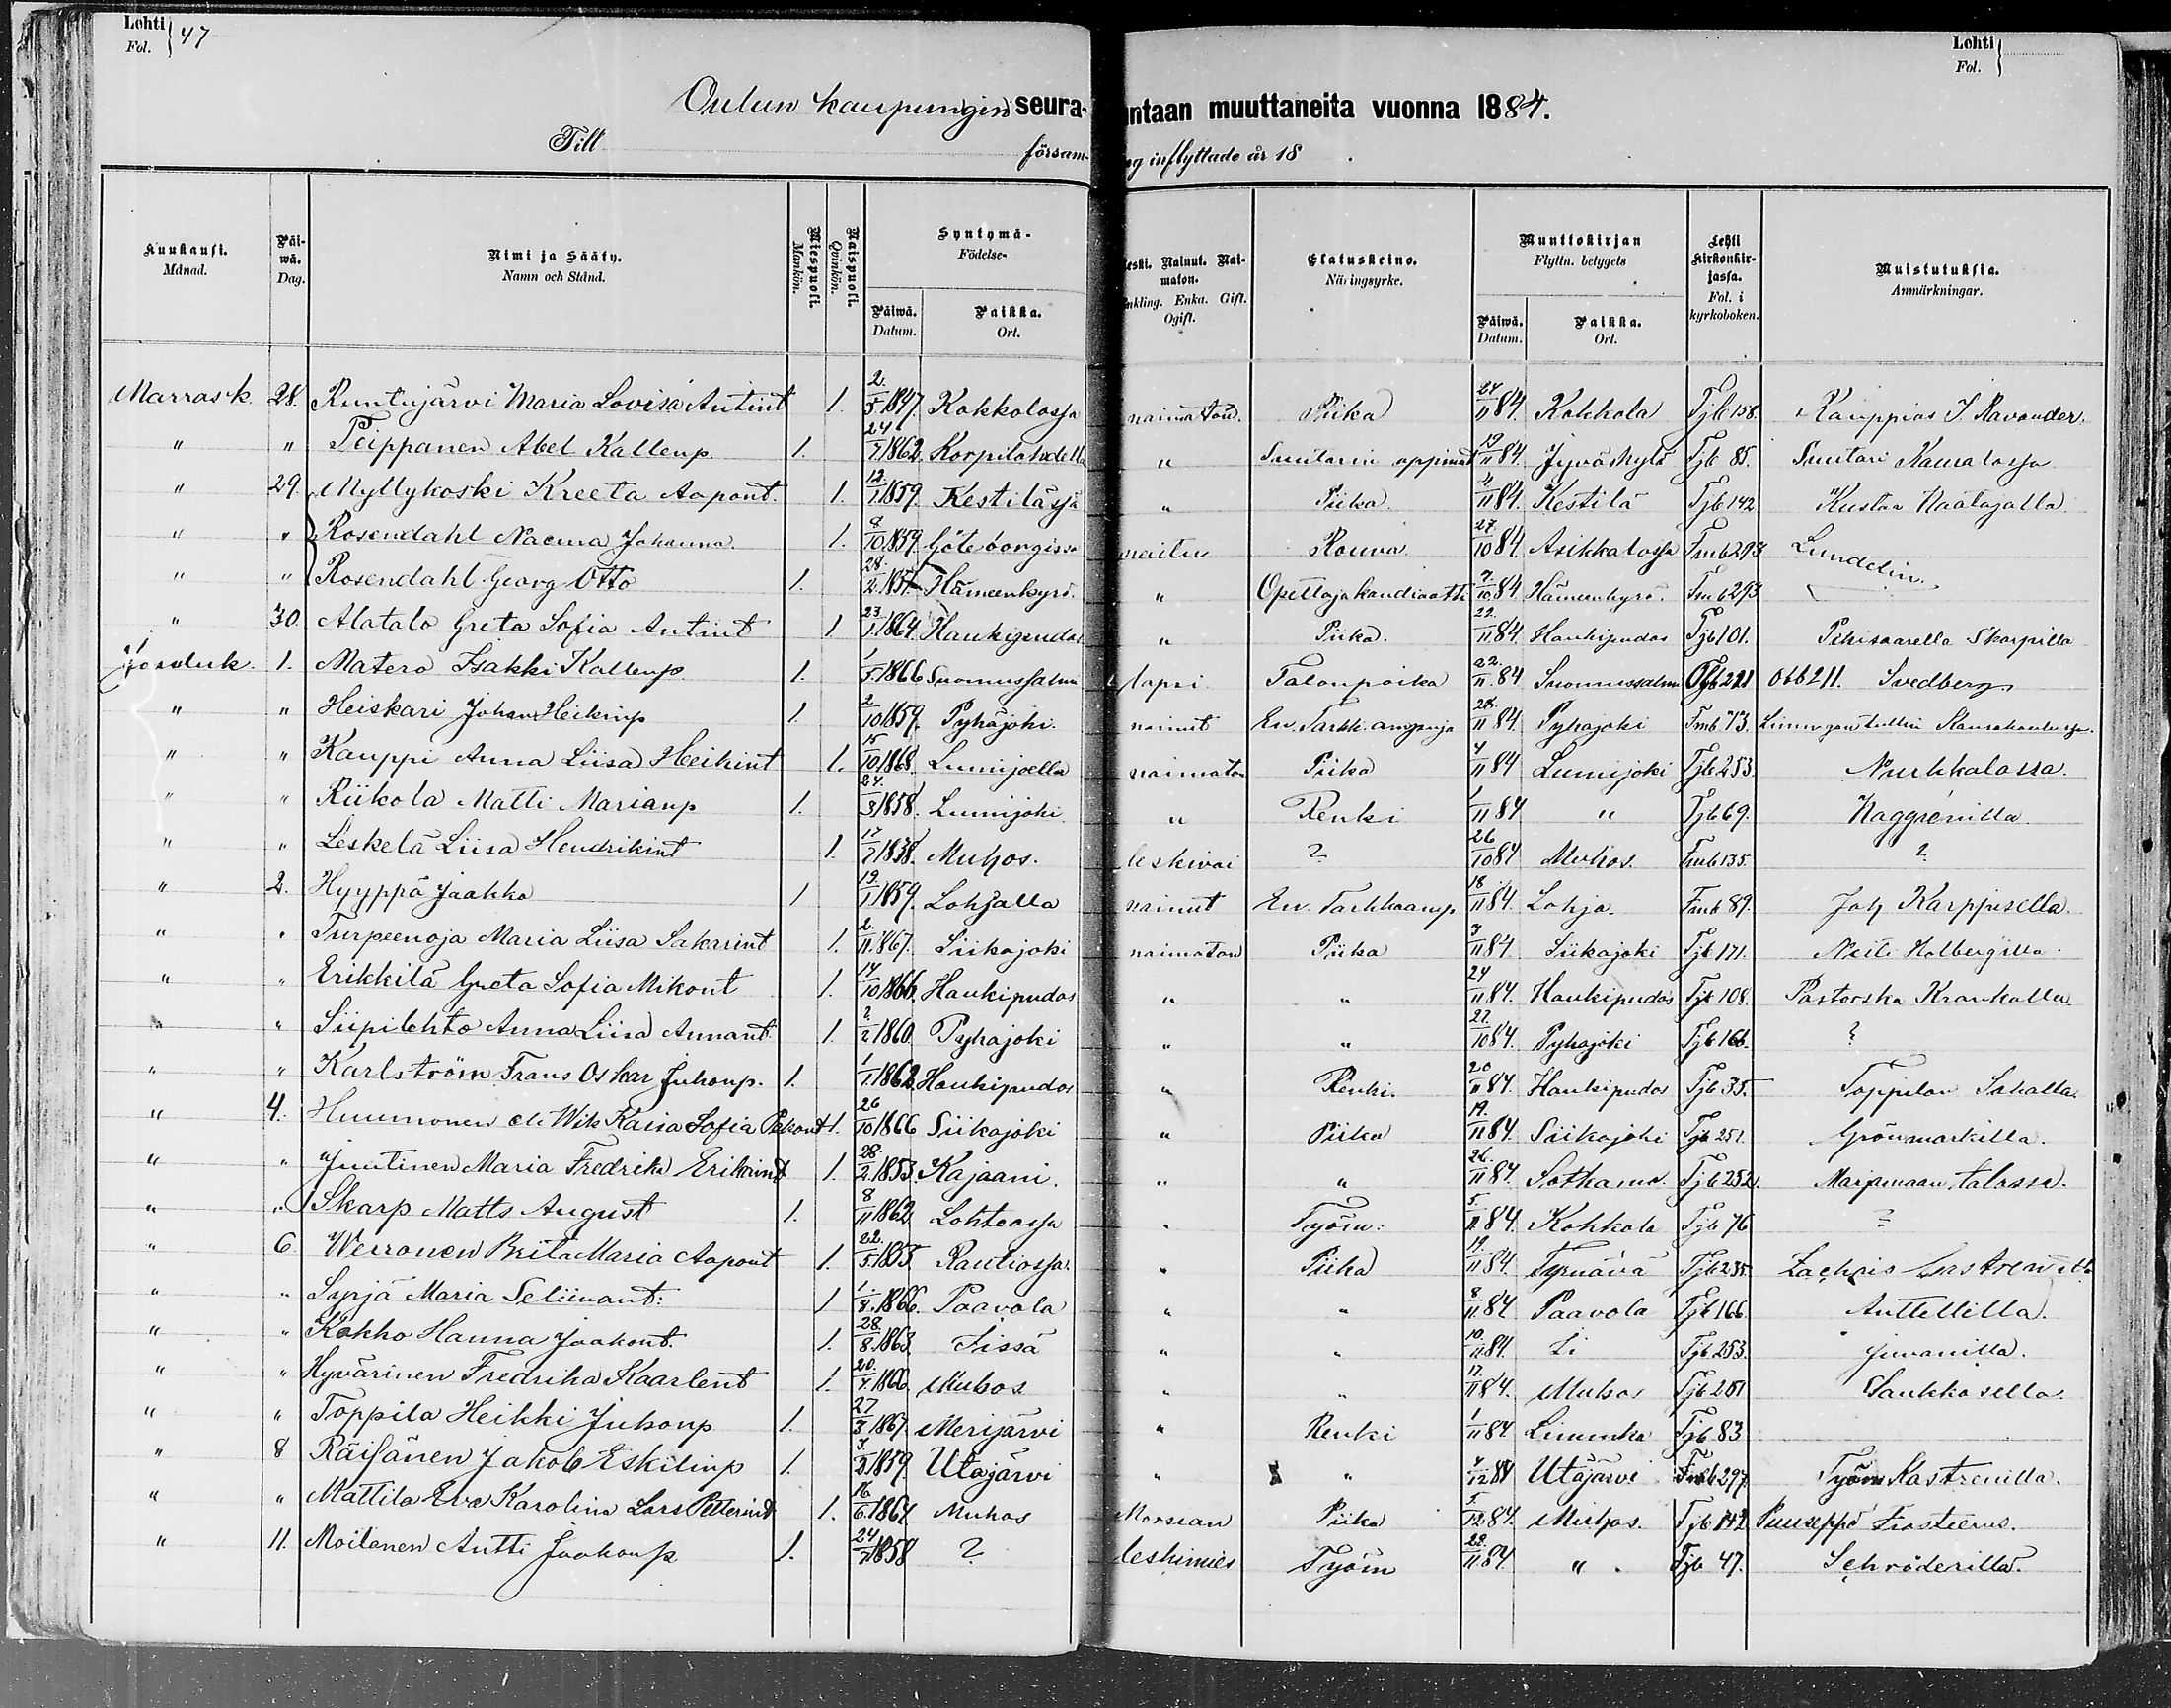 Lohti 47 Lohti
Fol. Fol.
Oulun kaupungin seura- ntaan muuttaneita vuonna 1884.
Till försam- ng inflyttade år 18 .
Kuukausi. Månad. Päi-wä. Dag. Nimi ja Sääty. Namn och Stånd. Miespuoli. Mankön. Naispuoli. Qvinkön. Syntymä- Födelse- Päiwä. Datum. Paikka. Ort. eski. Nainut. Nai-maton. nkling. Enka. Gift. Ogift. Elatuskeino. Näringsyrke. Muuttokirjan Flyttn. betygets Päiwä. Datum. Paikka. Ort. Lehti Kirkonkir-jassa. Fol. i kyrkoboken. Muistutuksia. Anmärkningar.
Marrask. 28. Runtujärvi Maria Lovisa Antint 1. 2/5 1847. Kokkolassa naimaton Piika 24/11 84. Kokkola Tjb 158. Kauppias J. Ravander.
" " Peippanen Abel Kallenp. 1. 24/7 1862. " Suutarin 19/11 84. Jyväskylä Tjb 85. Suutari
" 29. Myllykoski Kreeta Aapont. 1. 12/1 1859. Kestilässä " Piika 4/11 84. Kestilä Tjb 142 Kustaa
" " Rosendahl Naema Johanna. 1. 8/10 1859. Göteborgissa naitu Rouva 27/10 84. Asikkalassa Fmb 293 Lundelin.
" " Rosendahl Georg Otto 1. 28/2 1857. Hämeenkyrö. " Opettajakandiaatti 7/10 84. Hämeenkyrö. Fmb 293
" 30. Alatalo Greta Sofia Antint 1 23/1 1864. Haukipudas " Piika. 22/11 84. Haukipudas Tjb 101. Pikisaarella Skarpilla
Jouluk. 1. Matero Isakki Kallenp 1. 1/5 1866 Suomussalmi lapsi Talonpoika 22/11 84 Suomussalmi 221 Obb 211. Svedberg
" " Heiskari Johan Heikinp 1. 2/10 1859. Pyhäjoki. nainut 28/11 84. Pyhäjoki Fmb 73.
" " Kauppi Anna Liisa Heikint 1. 15/10 1868. Lumijoella naimaton Piika 4/11 84 Lumijoki Tjb 253.
" " Riikola Matti Marianp 1. 24/3 1858. Lumijoki " Renki 1/11 84 " Tjb 69. Haggrénilla
" " Leskelä Liisa Hendrikint 1. 17/7 1838. Muhos. leskivai ? 26/10 84 Muhos. Fmb 135. ?
" 2. Hyyppä Jaakko 1 19/1 1859. Lohjalla nainut En. Tarkkaamp 18/11 84. Lohja. Fmb 89. Joh Karppisella.
" " Turpeenoja Maria Liisa Sakarint 1. 2/11 1867. Siikajoki naimaton Piika 3/11 84 Siikajoki Tjb 171. Neiti Holbergilla.
" " Erikkilä Greta Sofia Mikont 1. 14/10 1866. Haukipudas " " 24/11 84. Haukipudas Tjb 108. Pastorska Krankalla
" " Siipilehto Anna Liisa Annant. 1. 2/2 1860. Pyhäjoki " " 27/10 84. Pyhäjoki Tjb 166. ?
" " Karlström Frans Oskar Juhonp. 1. 1/1 1862 Haukipudas " Renki. 20/11 84. Haukipudas Tjb 35. Toppilan Sahalla.
" 4. Huumonen Kaisa Sofia 1. 26/10 1866 Siikajoki " Piika 19/11 84. Siikajoki Tjb 251. Grönmarkilla.
" " Juutinen Maria Fredrika Erikint 1. 28/2 1853. Kajaani. " " 26/11 84. Sotkamo. Tjb 252. Marjamaan talossa.
" " Skarp Matts August 1. 8/11 1862 Lohteossa " Työm: 5/11 84. Kokkola Tjb 76 ?
" 6. Werronen Brita Maria Aapont 1. 22/5 1853 Rautiossa " Piika 19/11 84. Tyrnävä Tjb 235. Zachris
" " Syrjä Maria Seliinant: 1 1/8 1866. Paavola " " 8/11 84 Paavola Tjb 166. Anttellilla.
" " Kokko Hanna Jaakont. 1. 28/8 1863 Iissä " " 10/11 84. Ii Tjb 253. Juvanilla.
" " Hyvärinen Fredrika Kaarlent 1. 20/4 1866 Muhos " " 17/11 84. Muhos Tjb 251 Saukkosella.
" " Toppila Heikki Juhonp 1. 27/3 1867. Merijärvi " Renki 1/11 84 Liminka Tjb 83
" 8 Räisänen Jakob Eskilinp 1. 1859. Utajärvi " " 4/12 84 Utajärvi Fmb 297. Työm Kastrenilla.
" " Mattila Eva Karolina Lars Petterint 1. 16/6 1864 Muhos Morsian Piika 5/12 84. Muhos. Tjb 142 Puuseppä Frosterus.
" 11. Moilanen Antti Jaakonp 1. 24/7 1858 ? leskimies Työm 28/11 84. " Tjb 47. Schröderilla.